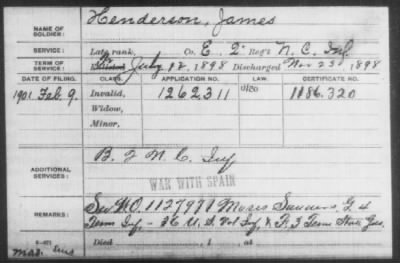 NAME OF SOLDIER: Henderson, James
SERVICE: Late rank, Co. E, 2" Reg't N. C. Inf.
TERM OF SERVICE: Enlisted July 12, 1898 Discharged Nov 23, 1898
DATE OF FILING. CLASS. APPLICATION NO. LAW. CERTIFICATE NO.
1901 Feb. 9. Invalid, 1262311 1186.320
Widow,
Minor,
ADDITIONAL SERVICES: B. 2 N. C. Inf
WAR WITH SPAIN
REMARKS: See 1127971 Moses G 4
Tenn Inf, - U. S. Vol Inf, 3 Tenn
Died , 1 , at